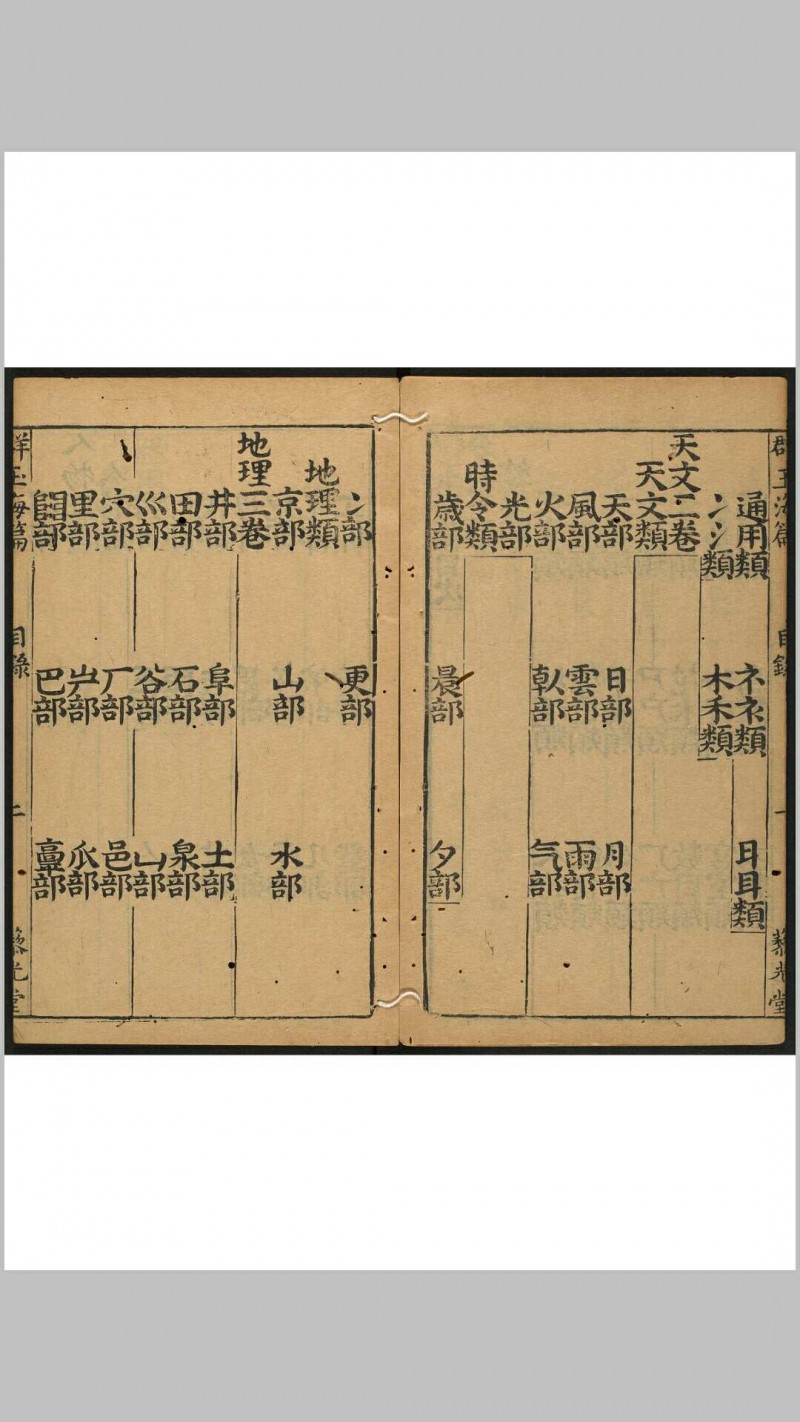 群玉海篇 目錄 一 藜光堂
通用類 礻衤類 日目類
冫氵類 木禾類
天文二卷
天文類
天部 日部 月部
風部 雲部 雨部
火部 倝部 气部
光部
時令類
歲部 晨部 夕部
冫部 更部
地理類
京部 山部 水部
地理三卷
井部 阜部 土部
田部 石部 泉部
巛部 谷部 部
穴部 厂部 邑部
里部 屵部 部
部 巴部 部
群玉海篇 目錄 二 藜光堂